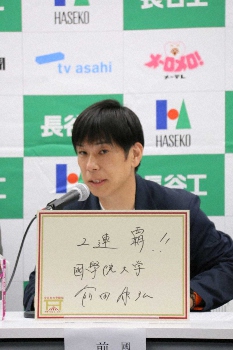 長谷工
HASEKO
tv asahi
メ〜テレ
HASEKO
長谷工
長谷工
2連覇!!
國學院大學
前田康弘
前 國